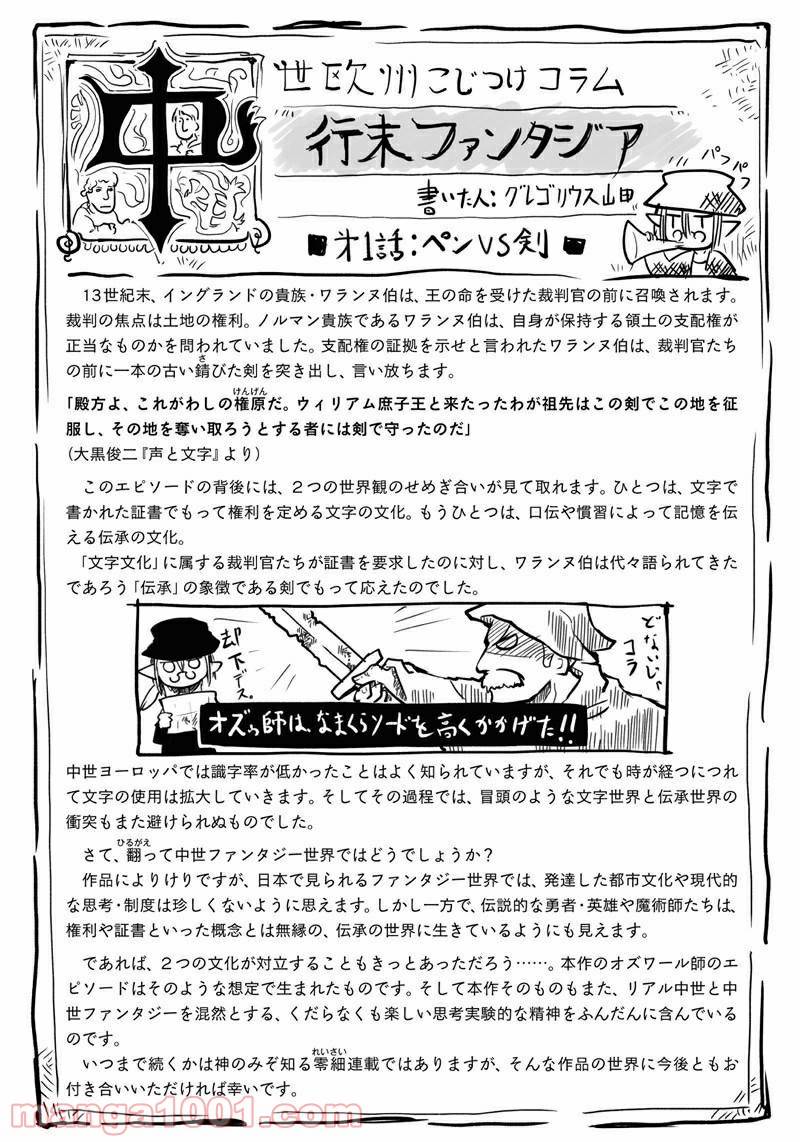 中世欧州こじつけコラム
行末ファンタジア
書いた人:グレゴリウス山田
パフパフ
■オ1話:ペンVS剣■
13世紀末、イングランドの貴族・ワランヌ伯は、王の命を受けた裁判官の前に召喚されます。
裁判の焦点は土地の権利。ノルマン貴族であるワランヌ伯は、自身が保持する領土の支配権が
正当なものかを問われていました。支配権の証拠を示せと言われたワランヌ伯は、裁判官たち
の前に一本の古い錆びた剣を突き出し、言い放ちます。
さ
けんげん
「殿方よ、これがわしの権原だ。ウィリアム庶子王と来たったわが祖先はこの剣でこの地を征
服し、その地を奪い取ろうとする者には剣で守ったのだ」
(大黒俊二『声と文字』より)
このエピソードの背後には、2つの世界観のせめぎ合いが見て取れます。ひとつは、文字で
書かれた証書でもって権利を定める文字の文化。もうひとつは、口伝や慣習によって記憶を伝
える伝承の文化。
「文字文化」に属する裁判官たちが証書を要求したのに対し、ワランヌ伯は代々語られてきた
であろう「伝承」の象徴である剣でもって応えたのでした。
どないじゃコラ
却下デス。
オズゥ師は、なまくらソードを高くかかげた!!
中世ヨーロッパでは識字率が低かったことはよく知られていますが、それでも時が経つにつれ
て文字の使用は拡大していきます。そしてその過程では、冒頭のような文字世界と伝承世界の
衝突もまた避けられぬものでした。
ひるがえ
さて、翻って中世ファンタジー世界ではどうでしょうか?
作品によりけりですが、日本で見られるファンタジー世界では、発達した都市文化や現代的
な思考・制度は珍しくないように思えます。しかし一方で、伝説的な勇者・英雄や魔術師たちは、
権利や証書といった概念とは無縁の、伝承の世界に生きているようにも見えます。
であれば、2つの文化が対立することもきっとあっただろう……。本作のオズワール師のエ
ピソードはそのような想定で生まれたものです。そして本作そのものもまた、リアル中世と中
世ファンタジーを混然とする、くだらなくも楽しい思考実験的な精神をふんだんに含んでいる
のです。
れいさい
いつまで続くかは神のみぞ知る零細連載ではありますが、そんな作品の世界に今後ともお
付き合いいただければ幸いです。
manga1001.com